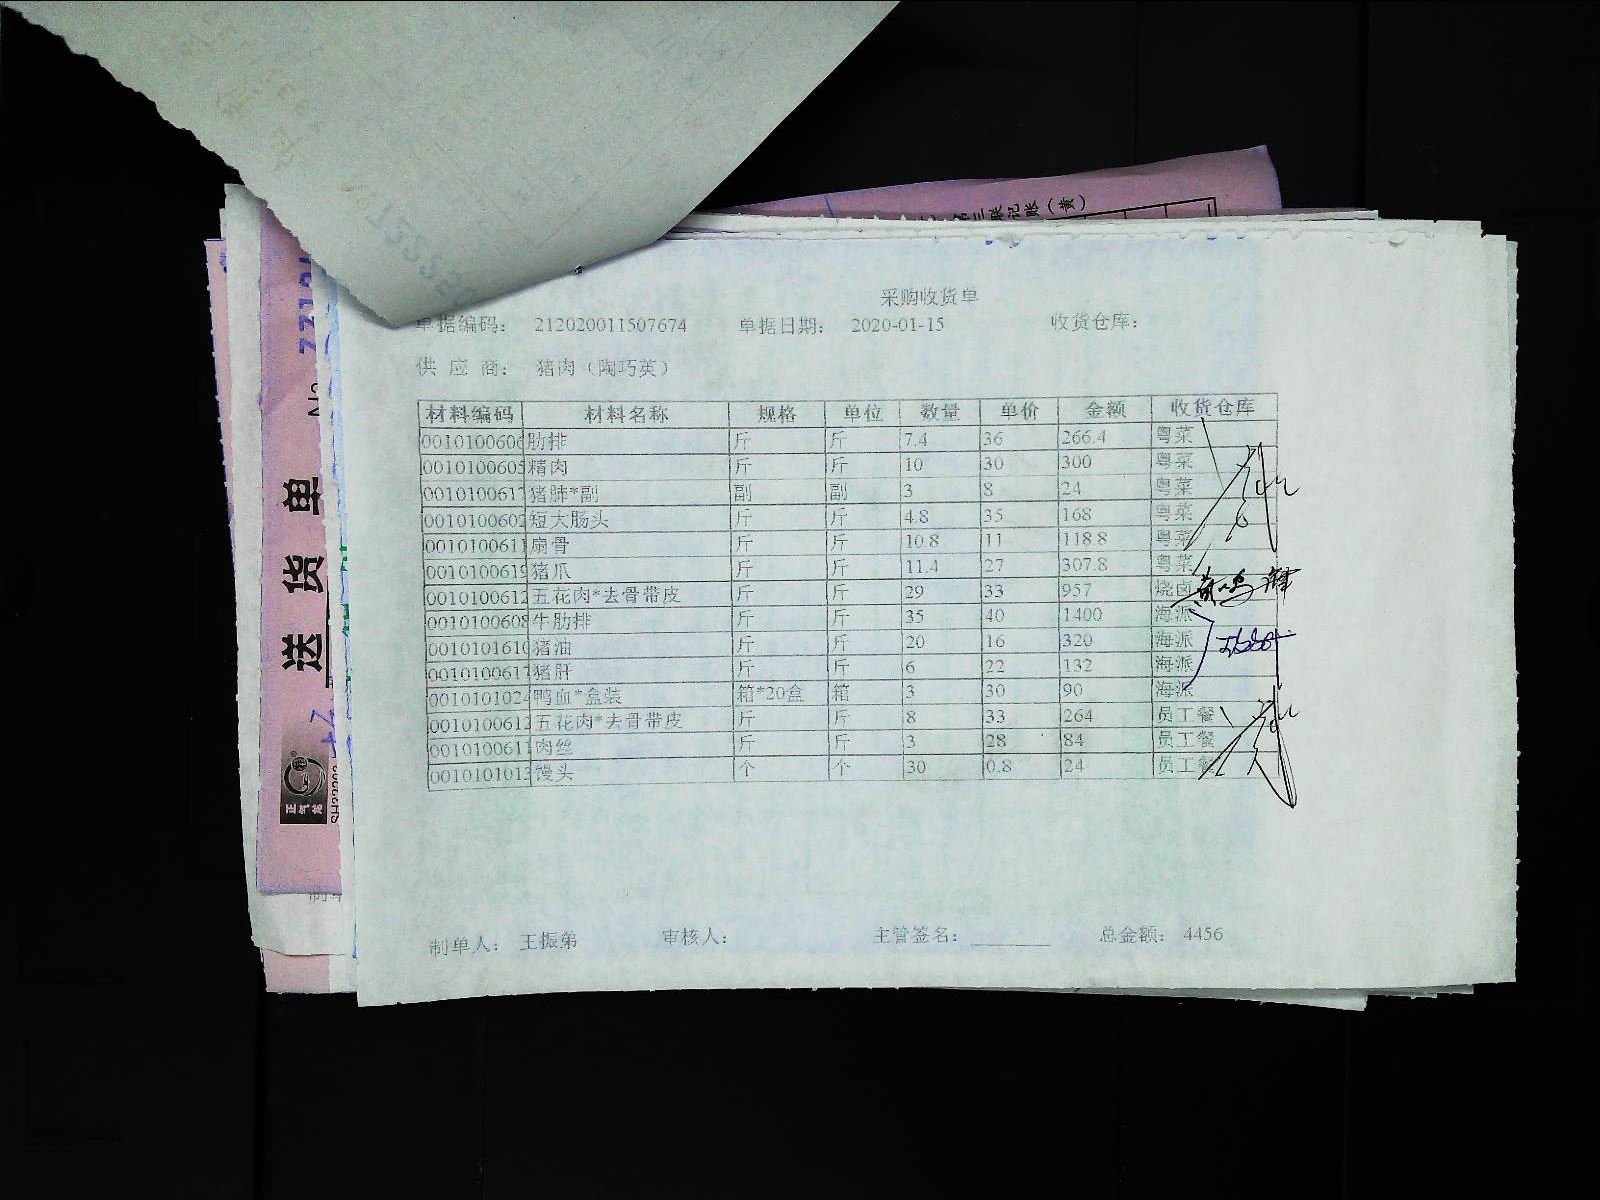 第三联记账(黄)
采购收货单
单据编码: 212020011507674 单据日期: 2020-01-15 收货仓库:
供 应 商: 猪肉(陶巧英)
材料编码 材料名称 规格 单位 数量 单价 金额 收货仓库
0010100606 肋排 斤 斤 7.4 36 266.4 粤菜
0010100605 精肉 斤 斤 10 30 300 粤菜
0010100617 猪肺*副 副 副 3 8 24 粤菜
0010100602 短大肠头 斤 斤 4.8 35 168 粤菜
0010100611 扇骨 斤 斤 10.8 11 118.8 粤菜
0010100619 猪爪 斤 斤 11.4 27 307.8 粤菜
0010100612 五花肉*去骨带皮 斤 斤 29 33 957 烧卤
0010100608 牛肋排 斤 斤 35 40 1400 海派
0010101610 猪油 斤 斤 20 16 320 海派
0010100617 猪肝 斤 斤 6 22 132 海派
0010101024 鸭血*盒装 箱*20盒 箱 3 30 90 海派
0010100612 五花肉*去骨带皮 斤 斤 8 33 264 员工餐
0010100611 肉丝 斤 斤 3 28 84 员工餐
0010101013 馒头 个 个 30 0.8 24 员工餐
制单人: 王振弟 审核人: 主管签名: 总金额: 4456
送货单
正气龙